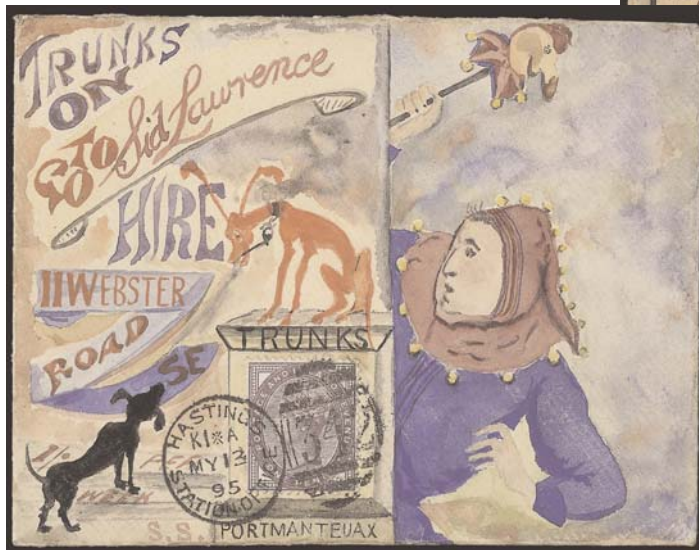 TRUNKS
ON
GO TO Sid Lawrence
HIRE
11 WEBSTER
ROAD
SE
TRUNKS
HASTINGS
K1*A
MY 13
95
STATION OFFICE
WEEK
S.S. PORTMANTEUAX